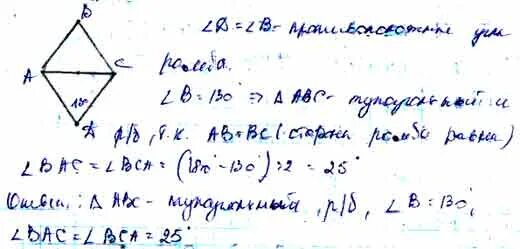 B
∠D = ∠B - противоположные углы
A C
ромба.
130°
∠B = 130° ⇒ △ABC - тупоугольный и
D
р/б, т.к. AB = BC (стороны ромба равны)
∠BAC = ∠BCA = (180° - 130°) : 2 = 25°
Ответ: △ABC - тупоугольный, р/б, ∠B = 130°,
∠BAC = ∠BCA = 25°